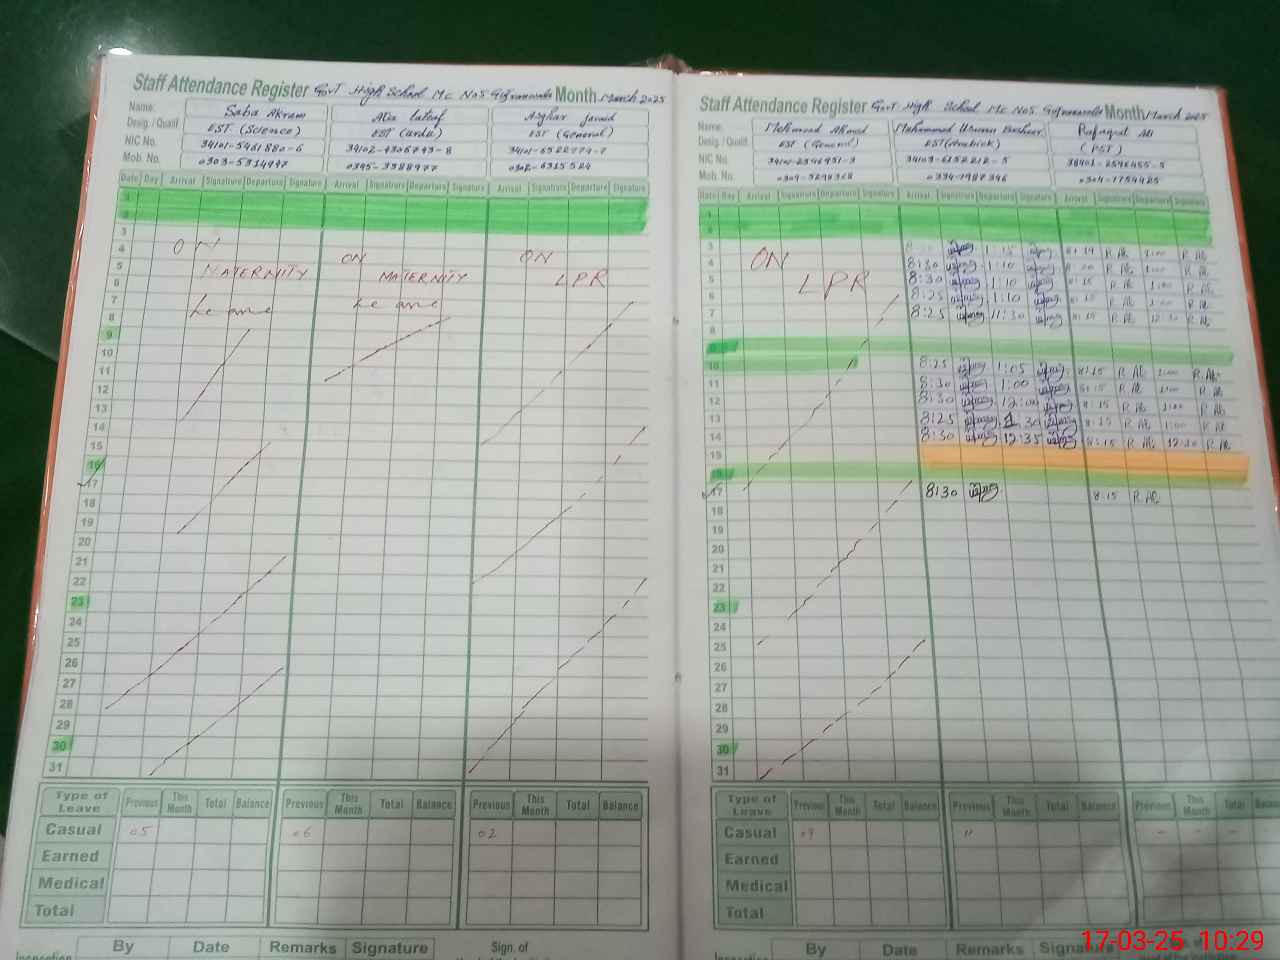 Staff Attendance Register Govt High School MC No5 Gujranwala Month March 2025
Name: Saba Akram
Desig. / Qualif. EST (Science) EST (urdu) EST (General)
NIC No. 34101-5461880-6 34102-4306743-8 34101-6522774-7
Mob. No. 0303-5314447 0345-3388977 0302-6315524
Date Day Arrival Signature Departure Signature Arrival Signature Departure Signature Arrival Signature Departure Signature
1
2
3
4 ON ON ON
5 MATERNITY MATERNITY LPR
6
7 Leave Leave
8
9
10
11
12
13
14
15
16
17
18
19
20
21
22
23
24
25
26
27
28
29
30
31
Type of Leave Previous This Month Total Balance Previous This Month Total Balance Previous This Month Total Balance
Casual 05 06 02
Earned
Medical
Total
By Date Remarks Signature Sign. of
Staff Attendance Register Govt High School MC No5 Gujranwala Month March 2025
Name: Mehmood Ahmad Muhammad Usman Basheer Rafaqat Ali
Desig. / Qualif. EST (General) (PST)
NIC No. 34101-2546931-3 34103-6152212-5 38401-2596455-5
Mob. No. 0304-1754425
Date Day Arrival Signature Departure Signature Arrival Signature Departure Signature Arrival Signature Departure Signature
1
3 1:15 R.Ali 1:00 R.Ali
4 ON 8:30 1:10 R.Ali 1:00 R.Ali
5 LPR 8:30 1:10 8:15 R.Ali 1:00 R.Ali
6 8:25 1:10 8:15 R.Ali 1:00 R.Ali
7 8:25 11:30 8:15 R.Ali 12:30 R.Ali
8
10 8:25 1:05 8:15 R.Ali 1:00 R.Ali
11 8:30 1:00 8:15 R.Ali 1:00 R.Ali
12 8:30 12:00 8:15 R.Ali 1:00 R.Ali
13 8:25 1:30 8:15 R.Ali 1:00 R.Ali
14 8:30 12:35 8:15 R.Ali 12:30 R.Ali
15
16
17 8:30 8:15 R.Ali
18
19
20
21
22
23
24
25
26
27
28
29
30
31
Type of Leave Previous This Month Total Balance Previous This Month Total Balance Previous This Month Total Balance
Casual 09 " - - -
Earned
Medical
Total
By Date Remarks Signature
17-03-25 10:29